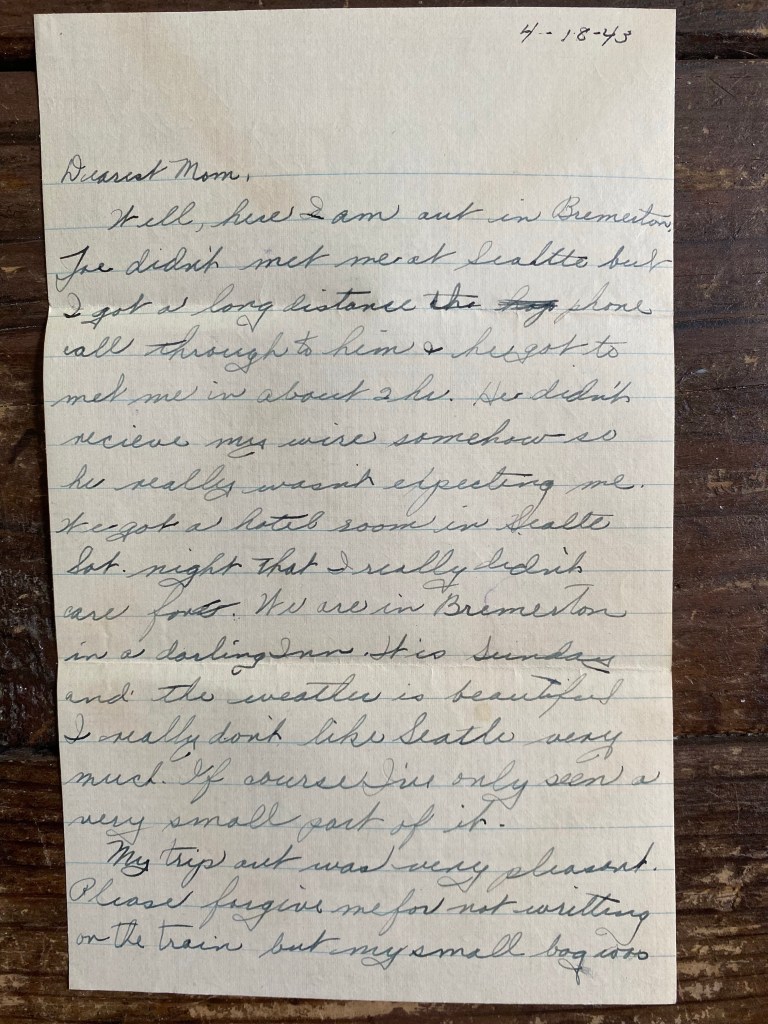 4-18-43
Dearest Mom,
Well, here I am out in Bremerton.
Joe didn't met me at Seattle but
I got a long distance the phone
call through to him & he got to
met me in about 2 hr. He didn't
recieve my wire somehow so
he really wasn't expecting me.
We got a hotel room in Sealte
Sat. night that I really didn't
care for. We are in Bremerton
in a darling Inn. It is Sunday
and the weather is beautiful
I really don't like Seatle very
much. Of course I've only seen a
very small part of it.
My trip out was very pleasant.
Please forgive me for not writting
on the train but my small bag was